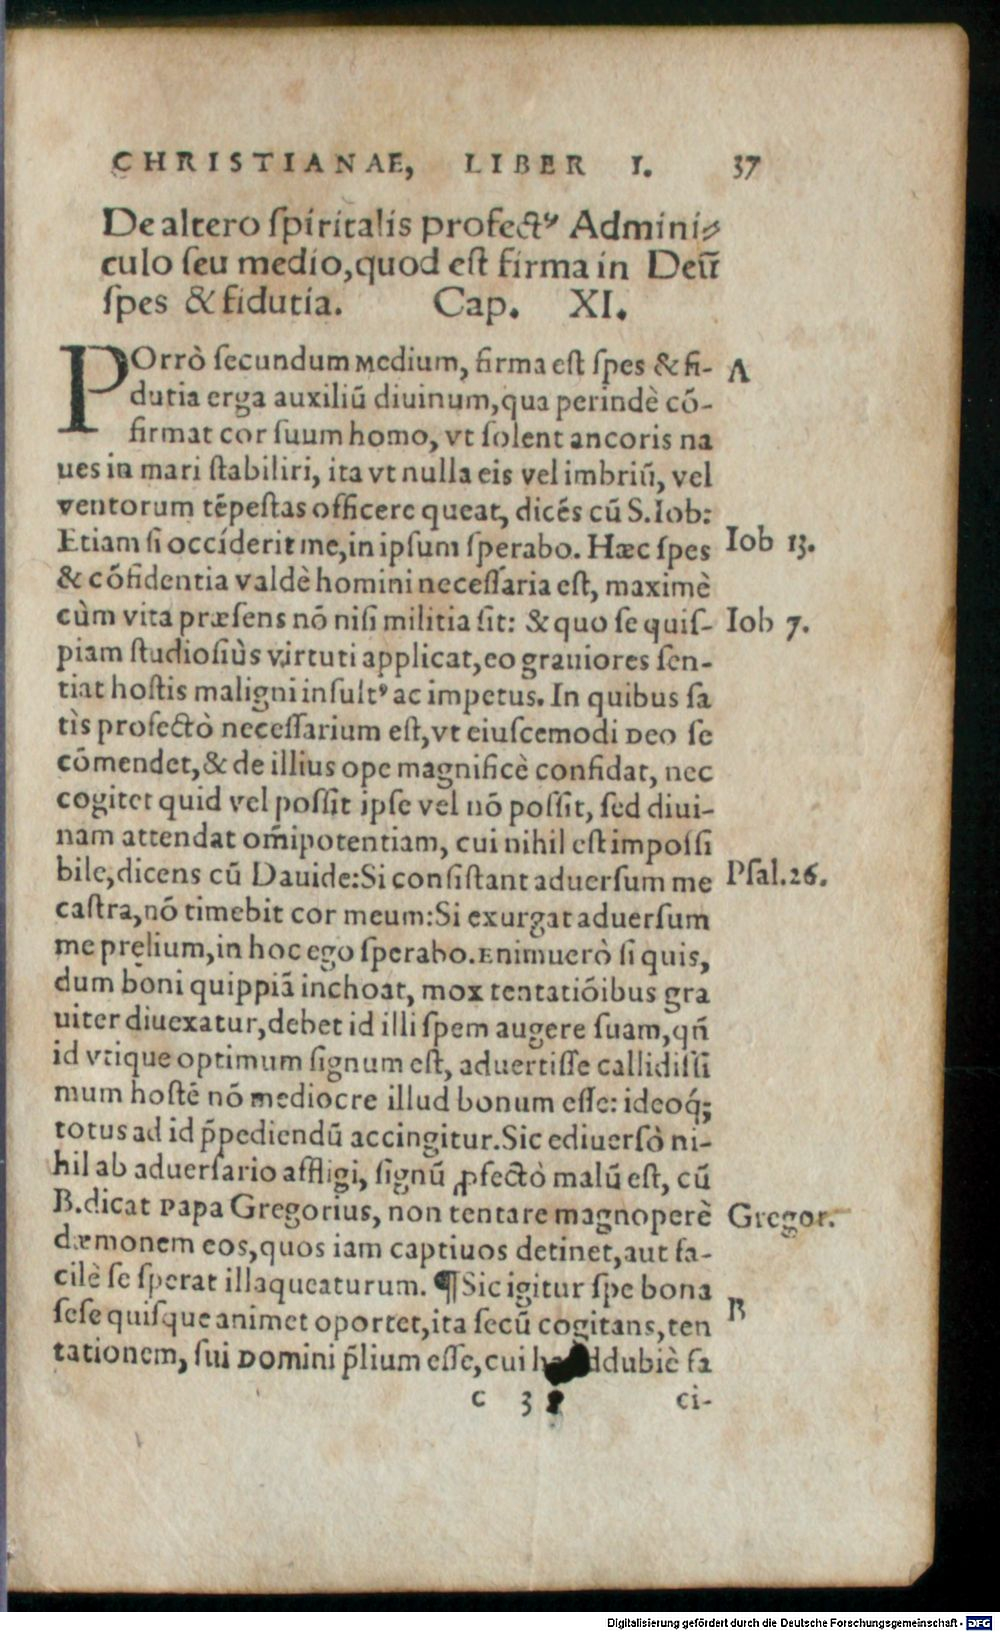 CHRISTIANAE, LIBER I. 37
De altero spiritalis profectꝰ Admini⸗
culo seu medio, quod est firma in Deū
spes & fidutia. Cap. XI.
POrrò secundum Medium, firma est spes & fi- A
dutia erga auxiliū diuinum, qua perindè cō-
firmat cor suum homo, vt solent ancoris na
ues in mari stabiliri, ita vt nulla eis vel imbriū, vel
ventorum tēpestas officere queat, dicēs cū S. Iob:
Etiam si occíderit me, in ipsum sperabo. Hæc spes Iob 13.
& cōfidentia valdè homini necessaria est, maximè
cùm vita præsens nō nisi militia sit: & quo se quis- Iob 7.
piam studiosiùs virtuti applicat, eo grauiores sen-
tiat hostis maligni insultꝰ ac impetus. In quibus sa
tìs profectò necessarium est, vt eiuscemodi DEO se
cōmendet, & de illius ope magnificè confidat, nec
cogitet quid vel possit ipse vel nō possit, sed diui-
nam attendat om̄ipotentiam, cui nihil est impossi
bile, dicens cū Dauide: Si consistant aduersum me Psal. 26.
castra, nō timebit cor meum: Si exurgat aduersum
me pręlium, in hoc ego sperabo. Enimuerò si quis,
dum boni quippiā inchoat, mox tentatiōibus gra
uiter diuexatur, debet id illi spem augere suam, qñ
id vtique optimum signum est, aduertisse callidissi
mum hostē nō mediocre illud bonum esse: ideoq́;
totus ad id p̄pediendū accingitur. Sic ediuersò ni-
hil ab aduersario affligi, signū ꝓfectò malū est, cū
B. dicat Papa Gregorius, non tentare magnoperè Gregor.
dæmonem eos, quos iam captiuos detinet, aut fa-
cilè se sperat illaqueaturum. ¶ Sic igitur spe bona
sese quisque animet oportet, ita secū cogitans, ten B
tationem, sui Domini p̄lium esse, cui dubiè fa
c 3 ci-
Digitalisierung gefördert durch die Deutsche Forschungsgemeinschaft - DFG